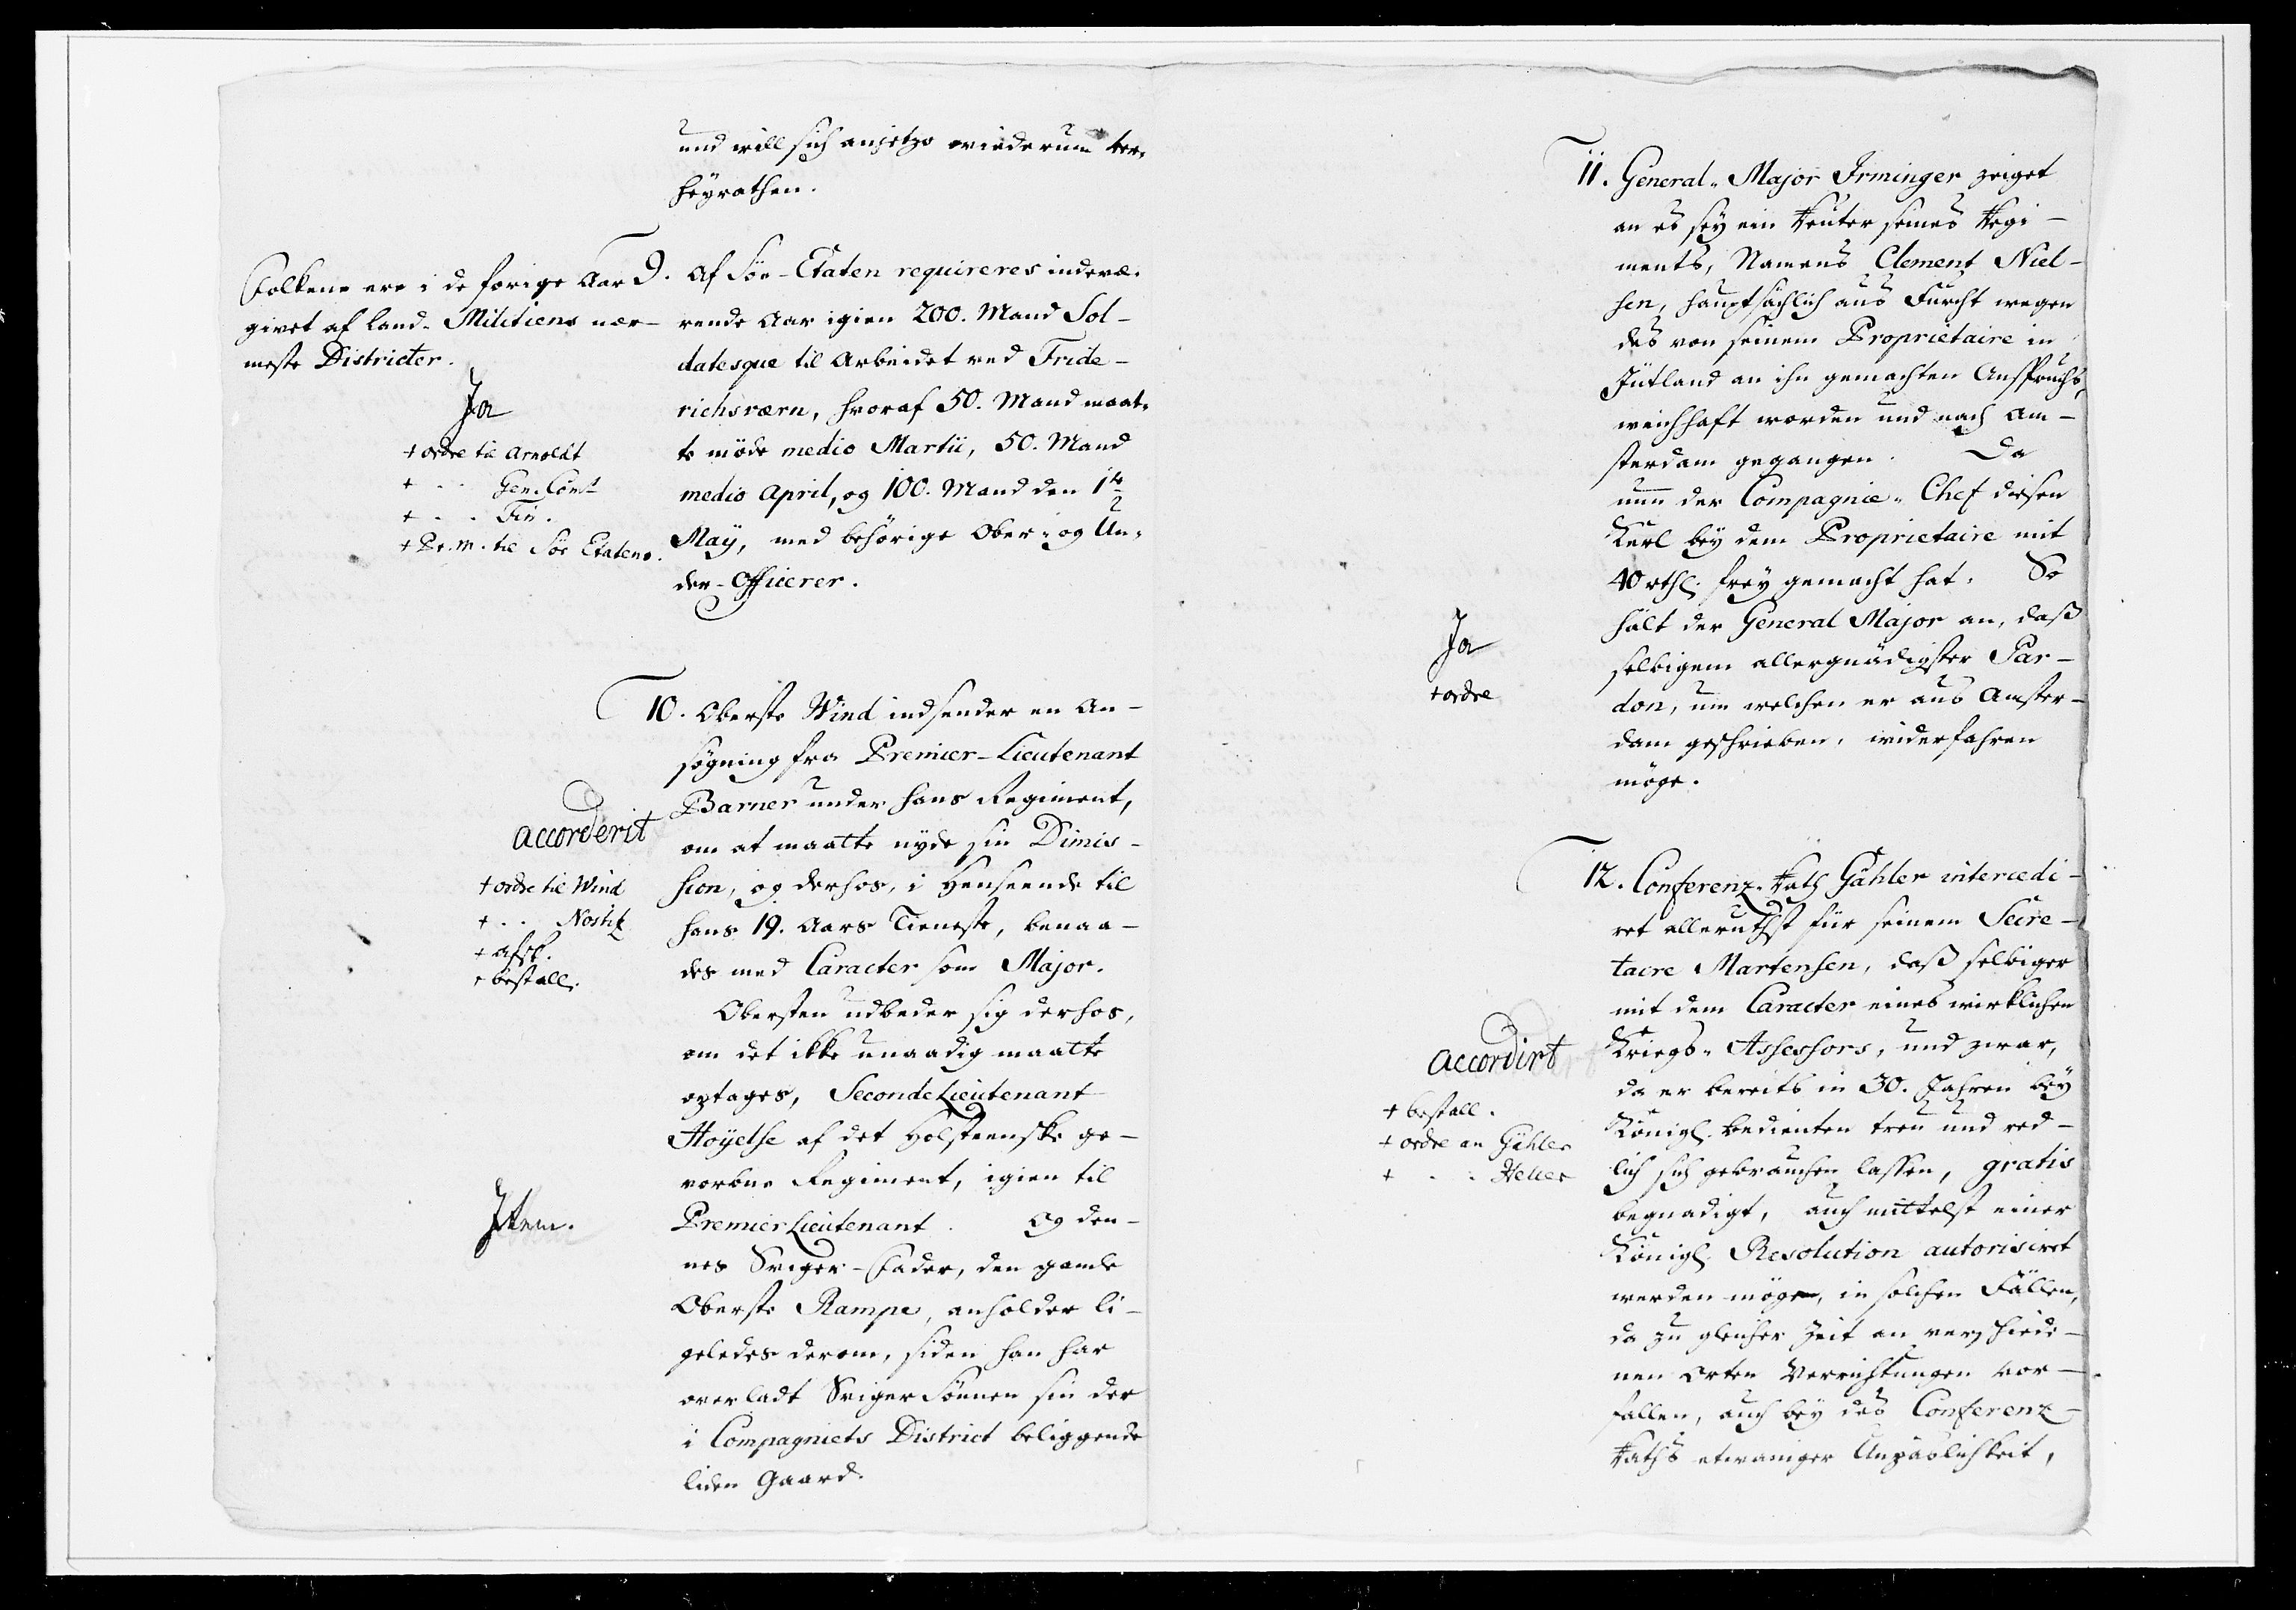 und will sich anjetzo wiederum ver-
heyrathen.
Folkene ere i de forige Aar
givet af Land-Militiens nær-
meste Districter.
Ja
+ ordre til Arnoldt
+ - - Gen. Com̅
+ - - Fin.
+ Pr. M. til Söe Etaten.
9. Af Söe-Etaten requireres indevæ-
rende Aar igien 200. Mand Sol-
datesque til Arbeidet ved Fride-
richsværn, hvoraf 50. Mand maat-
te möde medio Martii, 50. Mand
medio April, og 100. Mand den 1te
May, med behörige Ober- og Un-
der-Officerer.
10. Oberste Wind indsender en An-
sögning fra Premier-Lieutenant
Barner under hans Regiment,
om at maatte nyde sin Dimis-
sion, og derhos, i Henseende til
hans 19. Aars Tieneste, benaa-
des med Caracter som Major.
Obersten udbeder sig derhos,
om det ikke unaadig maatte
optages, Seconde Lieutenant
Höyelse af det Holsteenske ge-
vorbne Regiment, igien til
Premier Lieutenant. Og den-
nes Sviger-Fader, den gamle
Oberste Rampe, anholder li-
geledes derom, siden han har
overladt Sviger Sönnen sin der
i Compagniets District beliggende
liden Gaard.
accorderit
+ ordre til Wind
+ - - Nostitz
+ afsk.
+ bestall.
Item.
11. General-Major Irminger zeiget
an es sey ein Reuter seines Regi-
ments, Namens Clement Niel-
sen, hauptsächlich aus Furcht wegen
des von seinem Proprietaire in
Jütland an ihn gemachten Anspruchs,
weichhaft worden und nach Am-
sterdam gegangen. Da
nun der Compagnie-Chef diesen
Kerl bey dem Proprietaire mit
40 rthl. frey gemacht hat. So
hält der General Major an, daß
selbigem allergnädigster Par-
don, um welchen er aus Amster-
dam geschrieben, widerfahren
möge.
Ja
+ ordre
12. Conferenz-Rath Gähler intercedi-
ret alleruthst für seinem Secre-
taire Martensen, daß selbiger
mit dem Caracter eines wirklichen
Kriegs-Assessors, und zwar,
da er bereits in 30. Jahren bey
Königl. bedienten treu und red-
lich sich gebrauchen lassen, gratis
begnadigt, auch mittelst einer
Königl. Resolution autorisiret
werden möge, in solchen Fällen,
da zu gleicher Zeit an verschiede-
nen Orten Verrichtungen vor-
fallen, auch bey des Conferenz-
Raths etwaniger Unpäslichkeit,
accordirt
+ bestall.
+ ordre an Gähler
+ - -